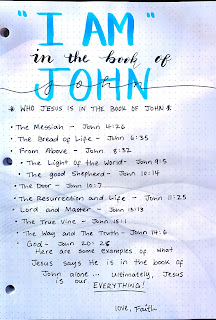 "I AM"
in the book of
JOHN
john
* WHO JESUS IS IN THE BOOK OF JOHN *
• The Messiah - John 4:26
• The Bread of Life - John 6:35
• From Above - John 8:32
• The Light of the World - John 9:5
• The good Shepherd - John 10:14
• The Door - John 10:7
• The Resurrection and Life - John 11:25
• Lord and Master - John 13:13
• The True Vine - John 15:1
• The Way and The Truth - John 14:6
God - John 20:28
Here are some examples of what
Jesus says He is in the book of
John alone... Ultimately, Jesus
is our EVERYTHING!
LOVE, Faith